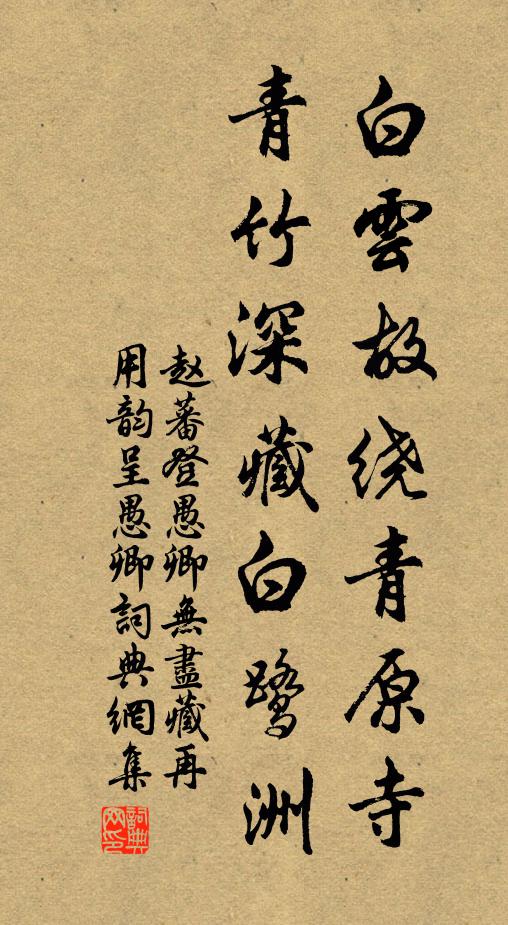 白雲故绕青原寺
青竹深藏白鹭洲
赵蕃登愚卿無盡藏再
用韵呈愚卿詞典網集
詞典网印